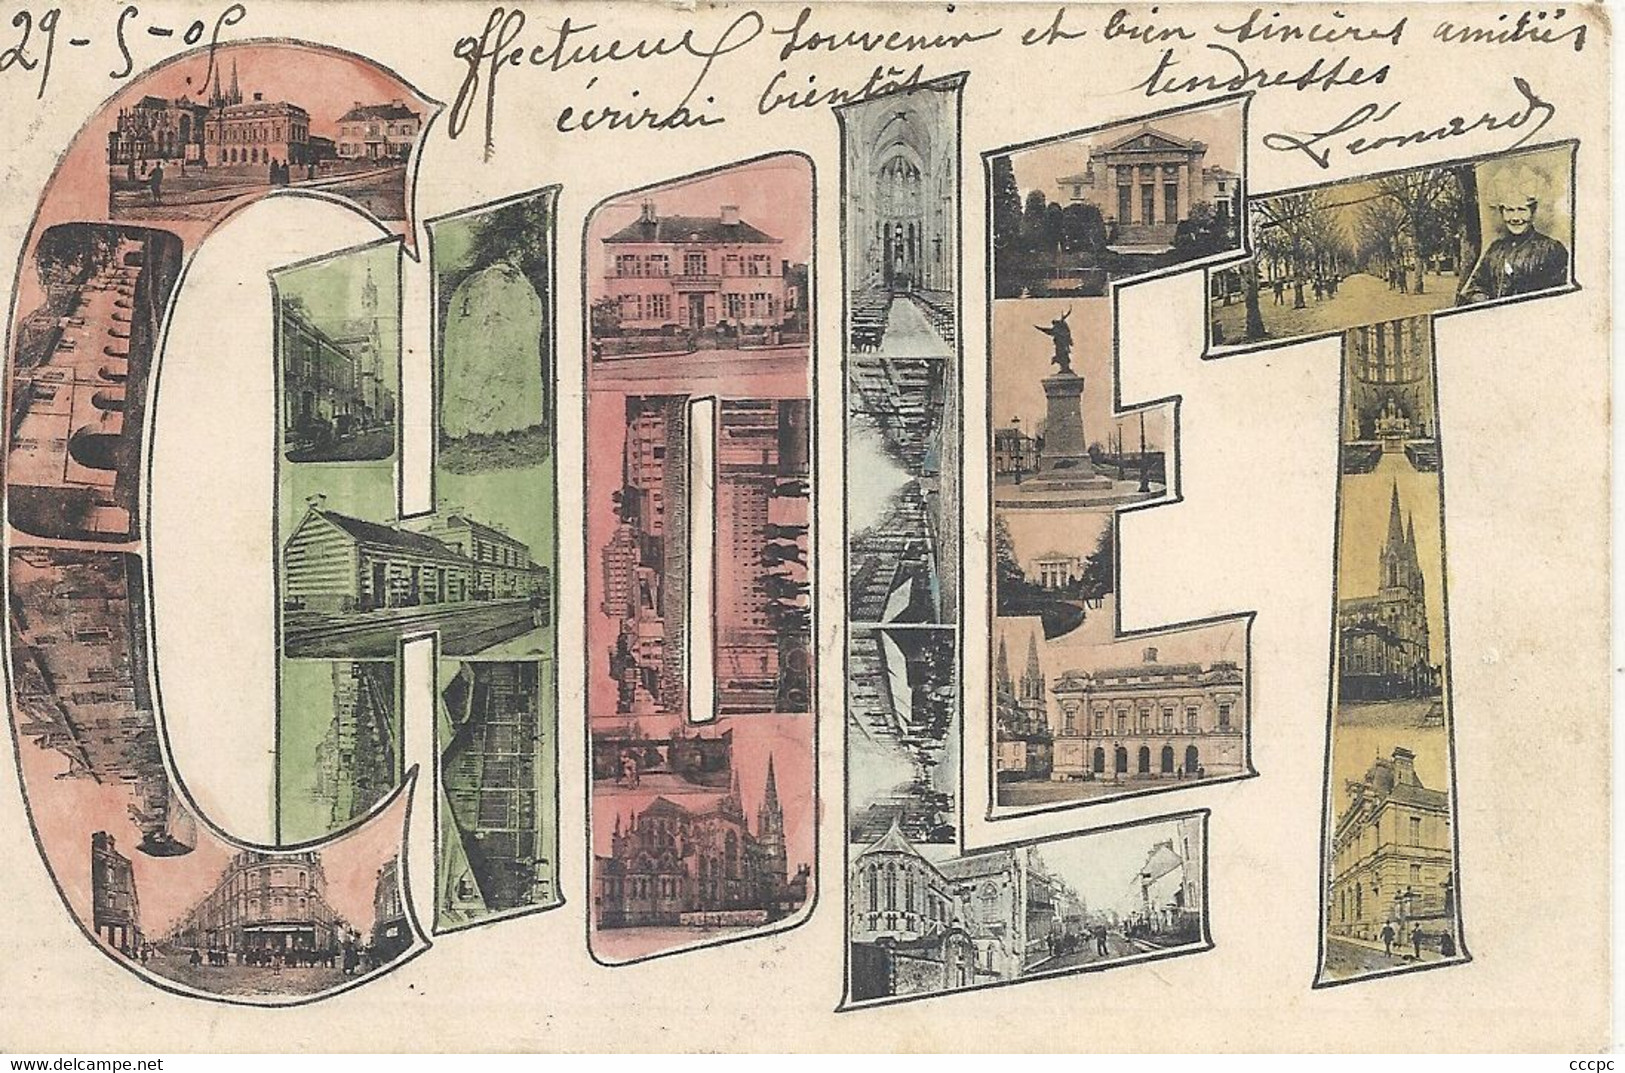 29-5-05
affectueux souvenir et bien sincères amitiés
écrirai bientôt tendresses
Léonard
CHOLET
www.delcampe.net
cccpc